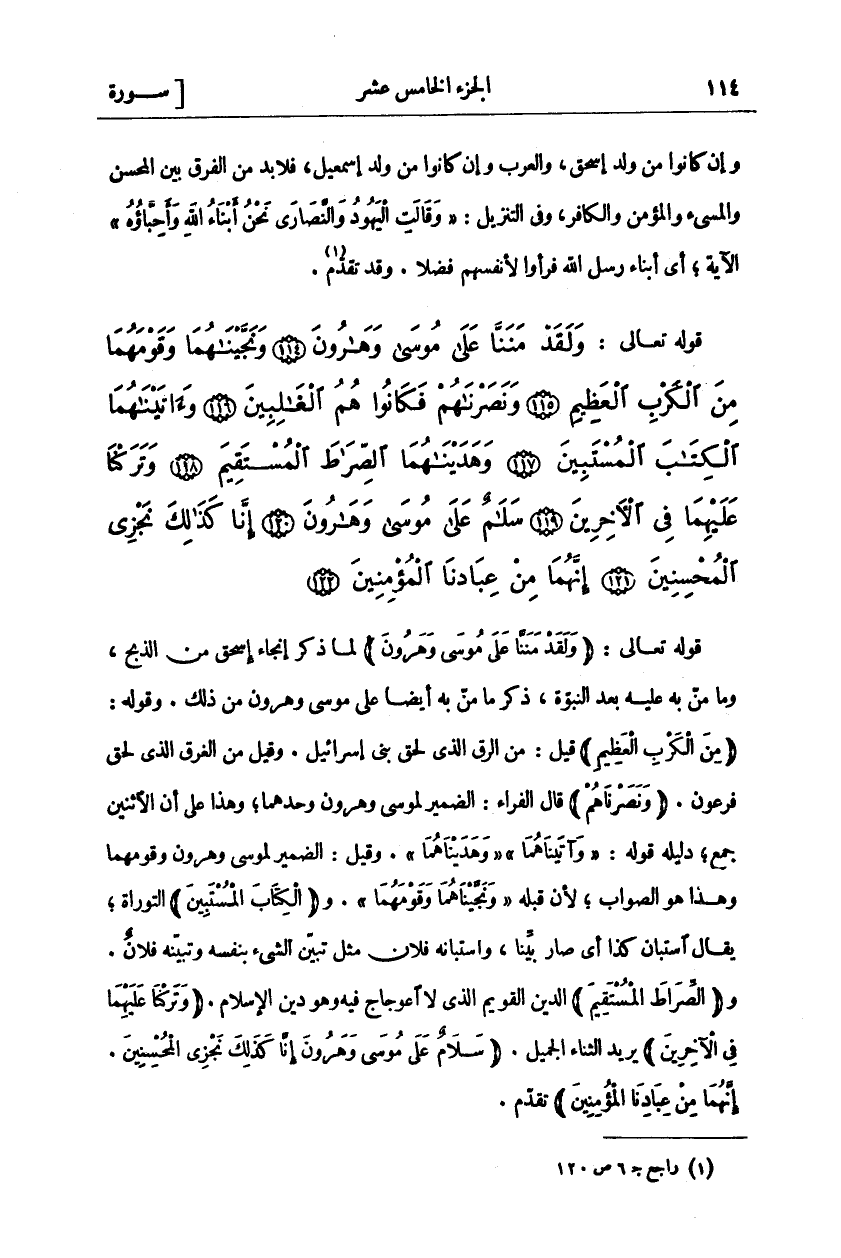 ١١٤ الجزء الخامس عشر [ ســورة
وإن كانوا من ولد إسحق، والعرب وإن كانوا من ولد إسمعيل، فلابد من الفرق بين المحسن
والمسىء والمؤمن والكافر، وفى التنزيل : « وَقَالَتِ الْيَهُودُ وَالنَّصَارَى نَحْنُ أَبْنَاءُ اللهِ وَأَحِبَّاؤُهُ »
الآية ؛ أى أبناء رسل الله فرأوا لأنفسهم فضلا . وقد تقدّم(١) .
قوله تعـالى : وَلَقَدْ مَنَنَّا عَلَىٰ مُوسَىٰ وَهَـٰرُونَ ﴿١١٤﴾ وَنَجَّيْنَـٰهُمَا وَقَوْمَهُمَا
مِنَ ٱلْكَرْبِ ٱلْعَظِيمِ ﴿١١٥﴾ وَنَصَرْنَـٰهُمْ فَكَانُوا هُمُ ٱلْغَـٰلِبِينَ ﴿١١٦﴾ وَءَاتَيْنَـٰهُمَا
ٱلْكِتَـٰبَ ٱلْمُسْتَبِينَ ﴿١١٧﴾ وَهَدَيْنَـٰهُمَا ٱلصِّرَٰطَ ٱلْمُسْتَقِيمَ ﴿١١٨﴾ وَتَرَكْنَا
عَلَيْهِمَا فِى ٱلْـَٔاخِرِينَ ﴿١١٩﴾ سَلَـٰمٌ عَلَىٰ مُوسَىٰ وَهَـٰرُونَ ﴿١٢٠﴾ إِنَّا كَذَٰلِكَ نَجْزِى
ٱلْمُحْسِنِينَ ﴿١٢١﴾ إِنَّهُمَا مِنْ عِبَادِنَا ٱلْمُؤْمِنِينَ ﴿١٢٢﴾
قوله تعـالى : ﴿ وَلَقَدْ مَنَنَّا عَلَى مُوسَى وَهَرُونَ ﴾ لمـا ذكر إنجاء إسحق من الذبح ،
وما منّ به عليـه بعد النبوّة ، ذكر ما منّ به أيضـا على موسى وهرون من ذلك . وقوله :
﴿ مِنَ الْكَرْبِ الْعَظِيمِ ﴾ قيل : من الرق الذى لحق بنى إسرائيل . وقيل من الغرق الذى لحق
فرعون . ﴿ وَنَصَرْنَاهُمْ ﴾ قال الفراء : الضمير لموسى وهرون وحدهما؛ وهذا على أن الآثنين
جمع؛ دليله قوله : « وَآتَيْنَاهُمَا » « وَهَدَيْنَاهُمَا » . وقيل : الضمير لموسى وهرون وقومهما
وهـذا هو الصواب ؛ لأن قبله « وَنَجَّيْنَاهُمَا وَقَوْمَهُمَا » . و﴿ الْكِتَابَ الْمُسْتَبِينَ ﴾ التوراة ؛
يقـال آستبان كذا أى صار بيِّنا ، واستبانه فلان مثل تبيّن الشىء بنفسه وتبيّنه فلانٌ .
و﴿ الصِّرَاطَ الْمُسْتَقِيمَ ﴾ الدين القويم الذى لا آعوجاج فيه وهو دين الإسلام . ﴿ وَتَرَكْنَا عَلَيْهِمَا
فِى الْآخِرِينَ ﴾ يريد الثناء الجميل . ﴿ سَـلَامٌ عَلَى مُوسَى وَهَرُونَ إِنَّا كَذَلِكَ نَجْزِى الْمُحْسِنِينَ .
إِنَّهُمَا مِنْ عِبَادِنَا الْمُؤْمِنِينَ ﴾ تقدّم .
(١) راجع جـ ٦ ص ١٢٠